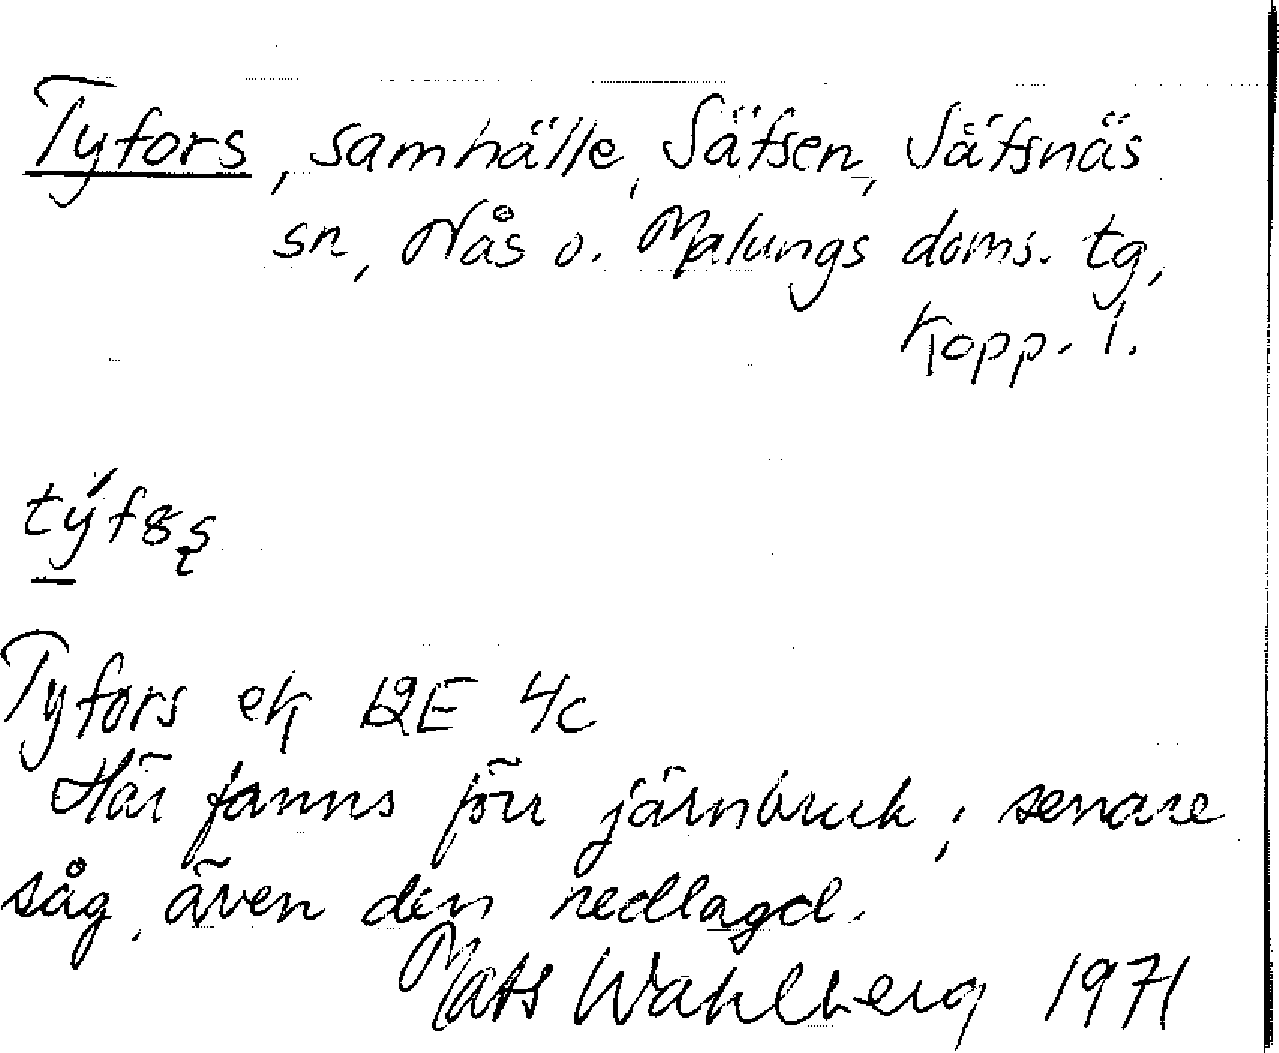 Tyfors, samhälle, Säfsen, Säfsnäs
sn, Nås o. Malungs doms. tg,
Kopp. l.
Tyfors ek 12E 4c
Här fanns förr järnbruk; senare
såg, även den nedlagd.
Mats Wahlberg 1971